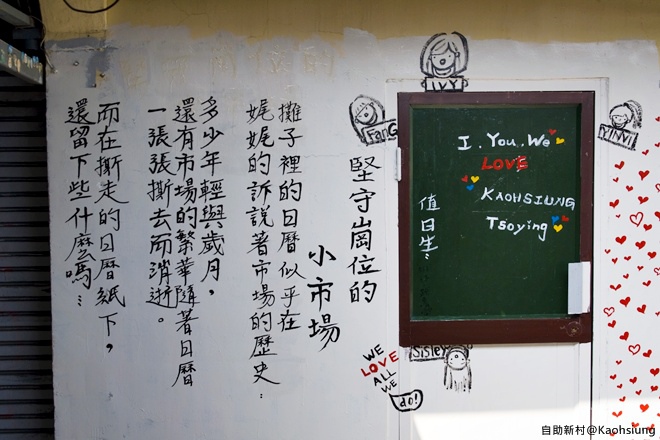 堅守崗位的
小市場
攤子裡的日曆似乎在
娓娓的訴說著市場的歷史：
多少年輕與歲月，
還有市場的繁華隨著日曆
一張張撕去而消逝。
而在撕走的日曆紙下，
還留下些什麼嗎…
IVY
FanG
YINVI
I. You. We
LOVE
KAOHSIUNG
Tsoying
值日生：
Sister
WE
LOVE
ALL
WE
do!
自助新村@Kaohsiung